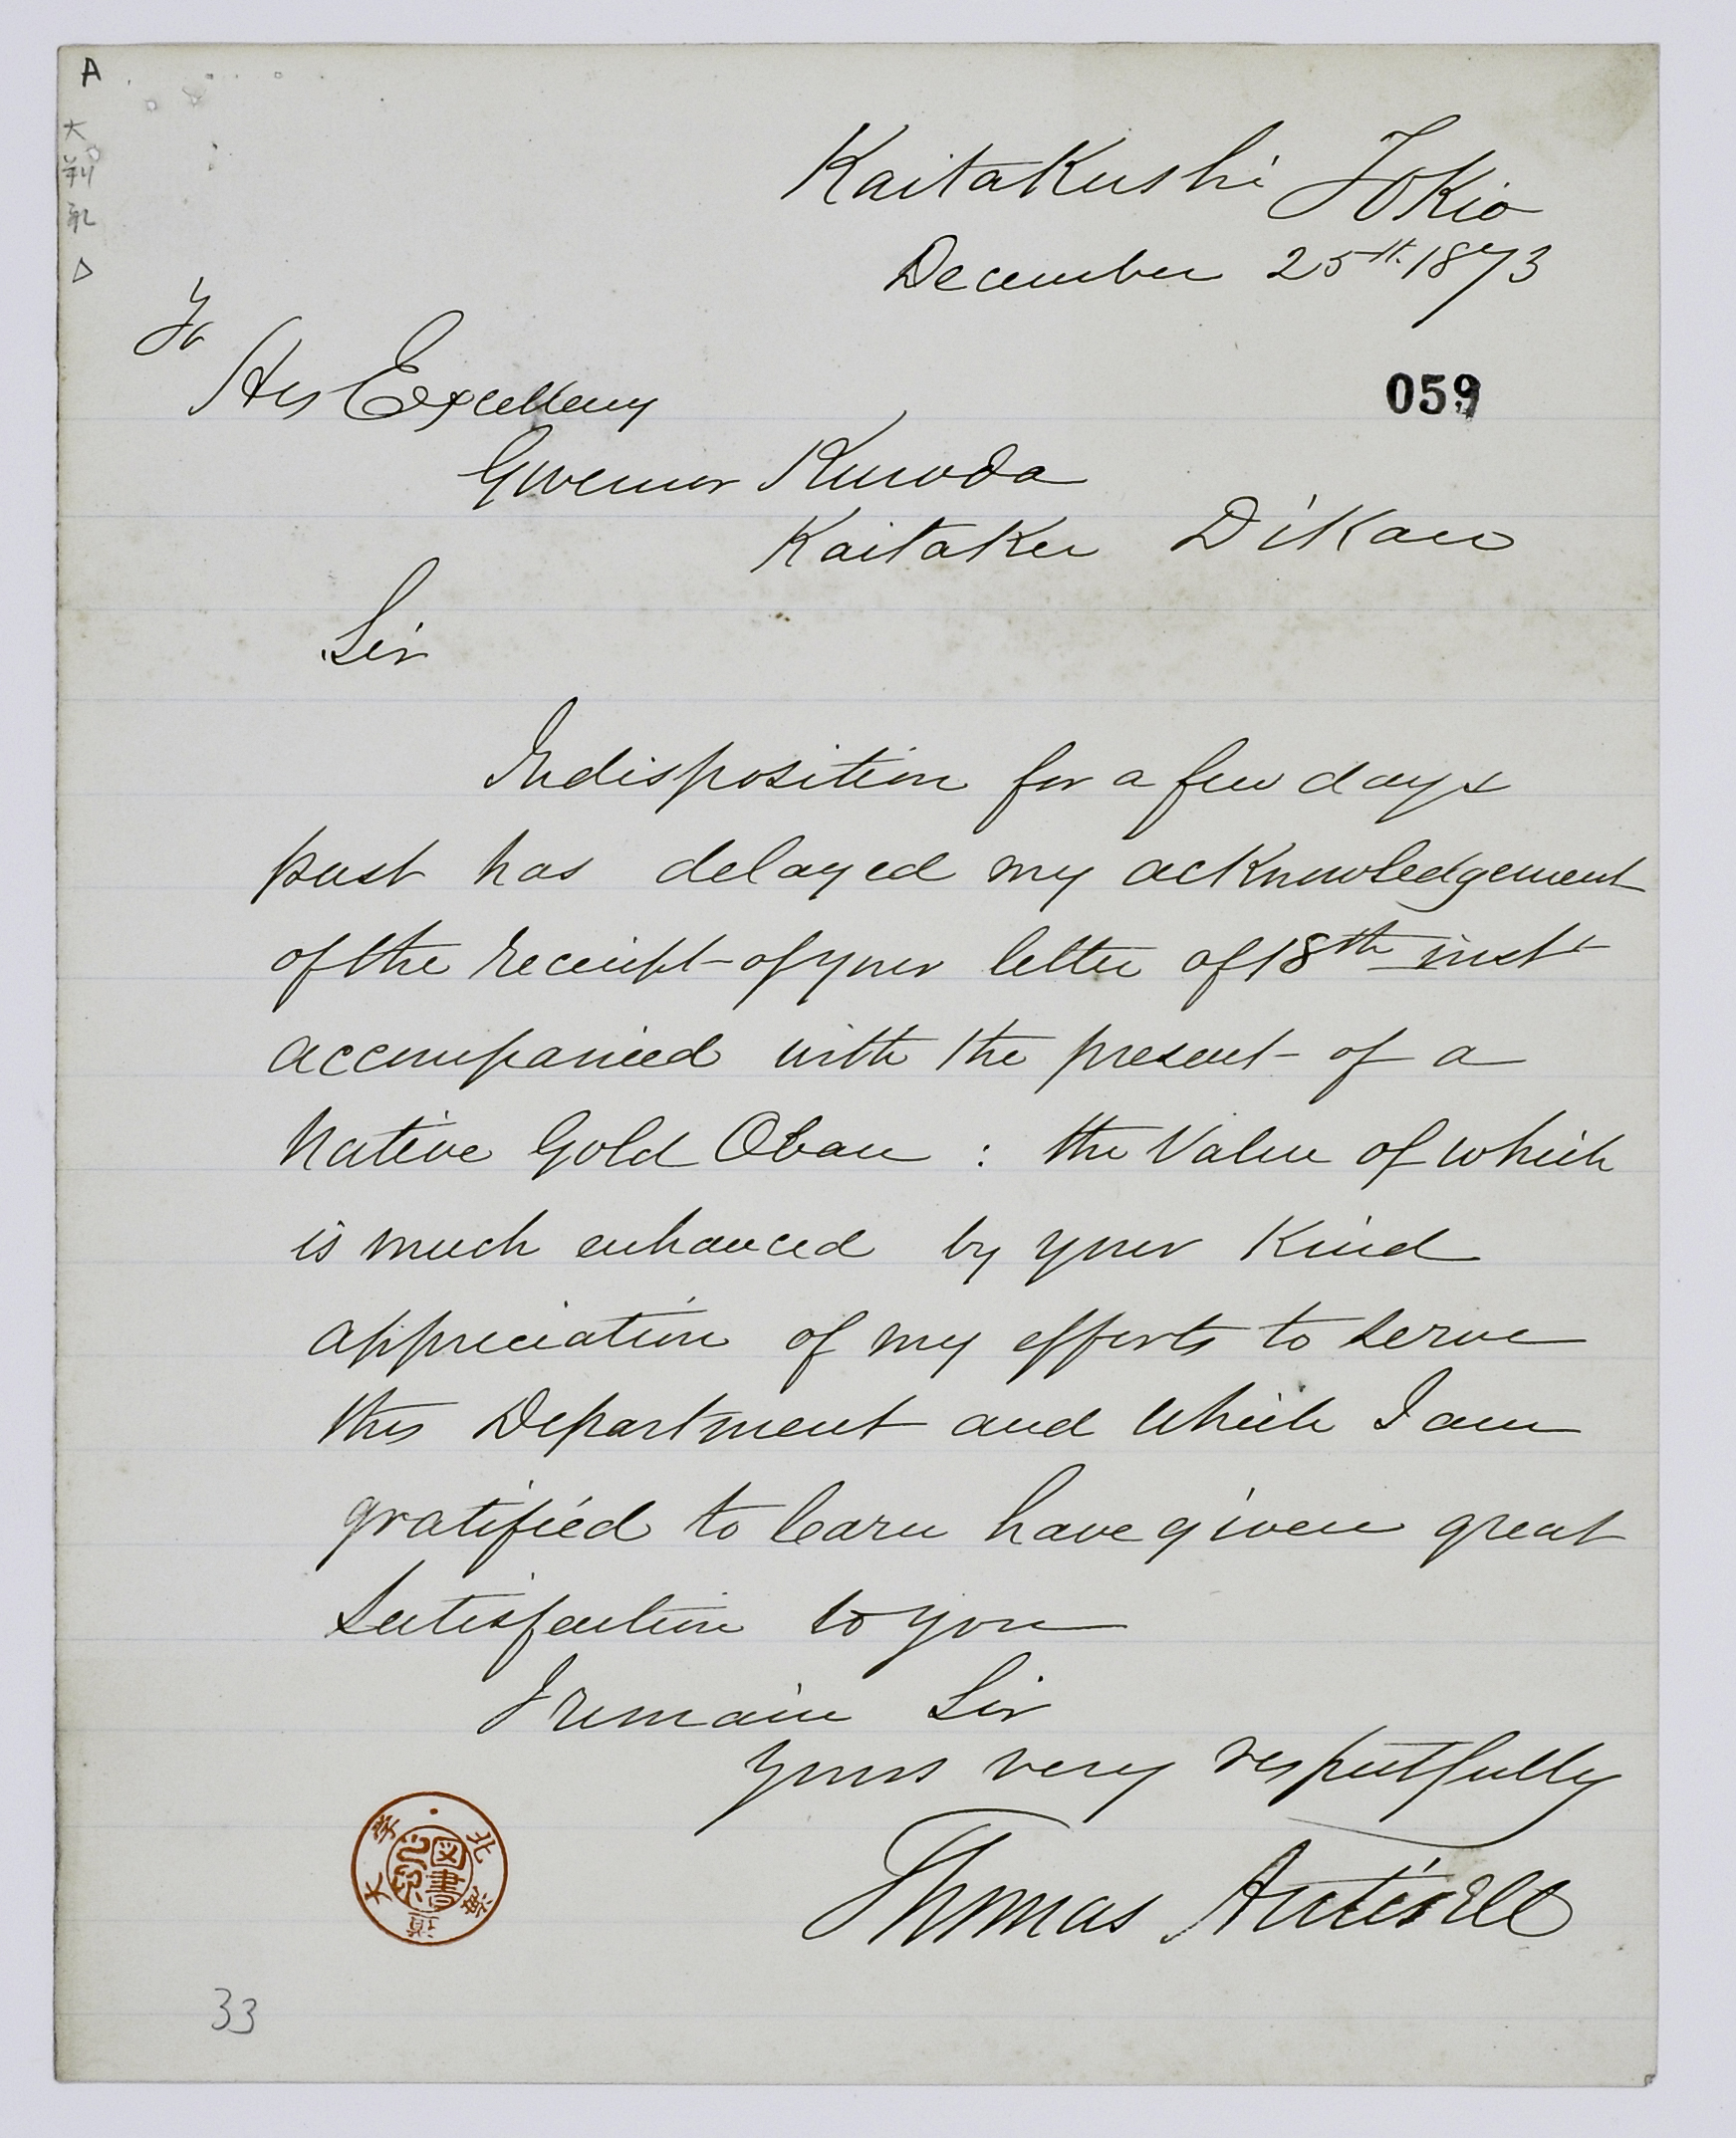 A
大
判
礼
Kaitakushi Tokio
December 25th. 1873
To
His Excellency
059
Governor Kuroda
Kaitaku Dikan
Sir
Indisposition for a few days
past has delayed my acknowledgement
of the receipt of your letter of 18th inst
accompanied with the present of a
Native Gold Oban : the Value of which
is much enhanced by your Kind
appreciation of my efforts to serve
this Department and which I am
gratified to learn have given great
Satisfaction to you
I remain Sir
yours very respectfully
Thomas Antisell
北海道大学
図書之印
33